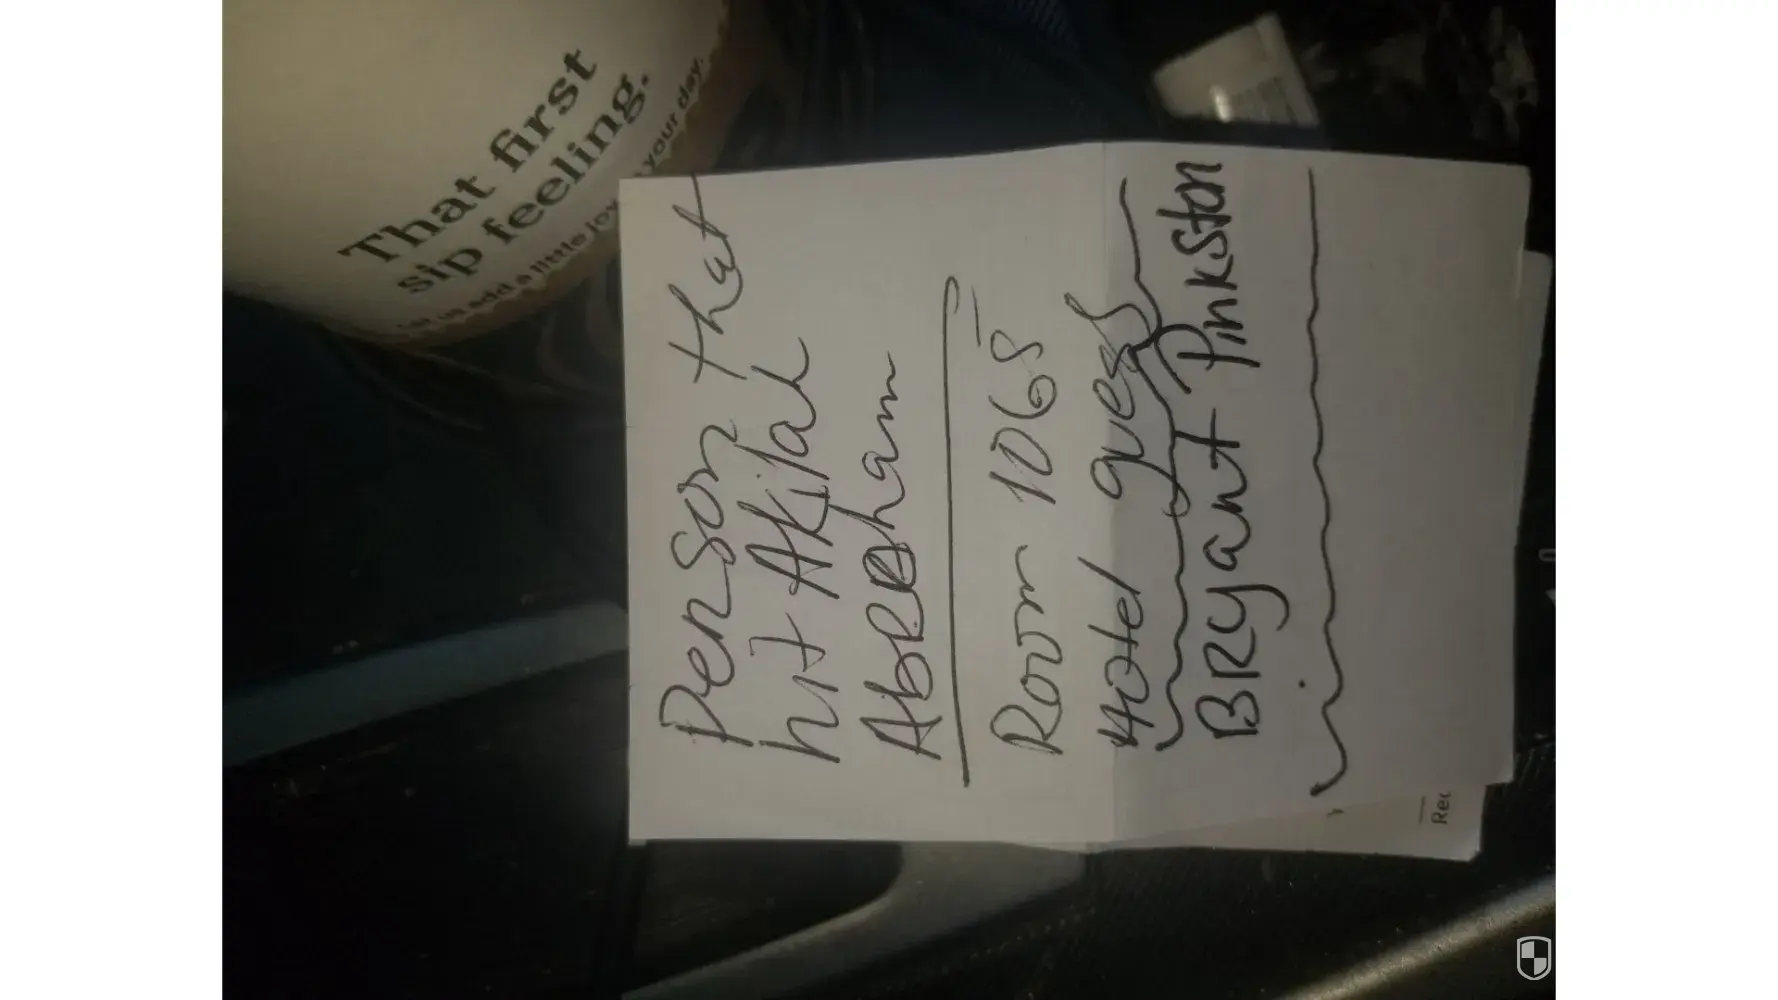 That first
sip feeling.
Let us add a little joy
your day.
Person that
hit AKilah
Abraham
Room 1068
Hotel guest
BRyant Pinkston
Rec